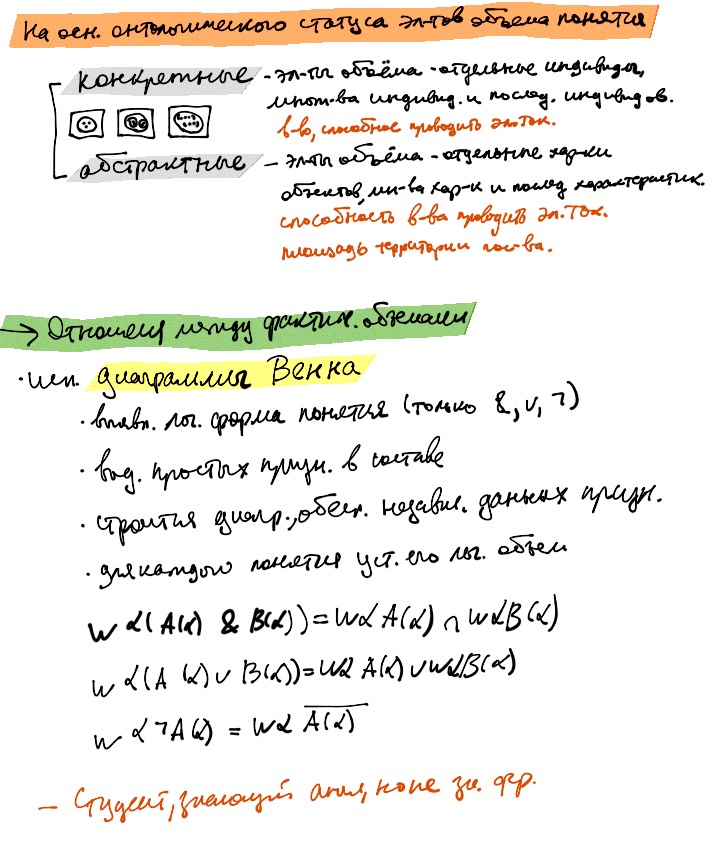 На осн. онтологического статуса эл-тов объёма понятия
конкретные - эл-ты объёма - отдельные индивиды,
множ-ва индивид. и послед. индивидов.
в-во, способное проводить эл.ток.
абстрактные - эл-ты объёма - отдельные хар-ки
объектов, мн-ва хар-к и послед. характеристик.
способность в-ва проводить эл. ток.
площадь территории гос-ва.
→ Отношения между фактич. объёмами
· исп. диаграммы Венна
· выявл. лог. форма понятия (только &, ∨, ¬)
· выд. простых призн. в составе
· строится диагр., обесп. независ. данных призн.
· для каждого понятия уст. его лог. объём
W α(A(α) & B(α)) = Wα A(α) ∩ WαB(α)
W α(A(α) ∨ B(α)) = Wα A(α) ∪ WαB(α)
W α ¬A(α) = Wα A̅(̅α̅)̅
- Студент, знающий англ, но не зн. фр.